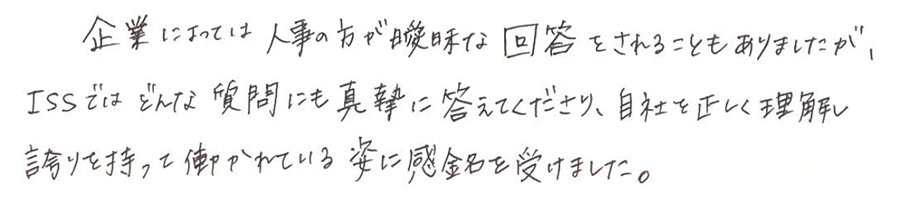 企業によっては人事の方が曖昧な回答をされることもありましたが、
ISSではどんな質問にも真摯に答えてくださり、自社を正しく理解し
誇りを持って働かれている姿に感銘を受けました。